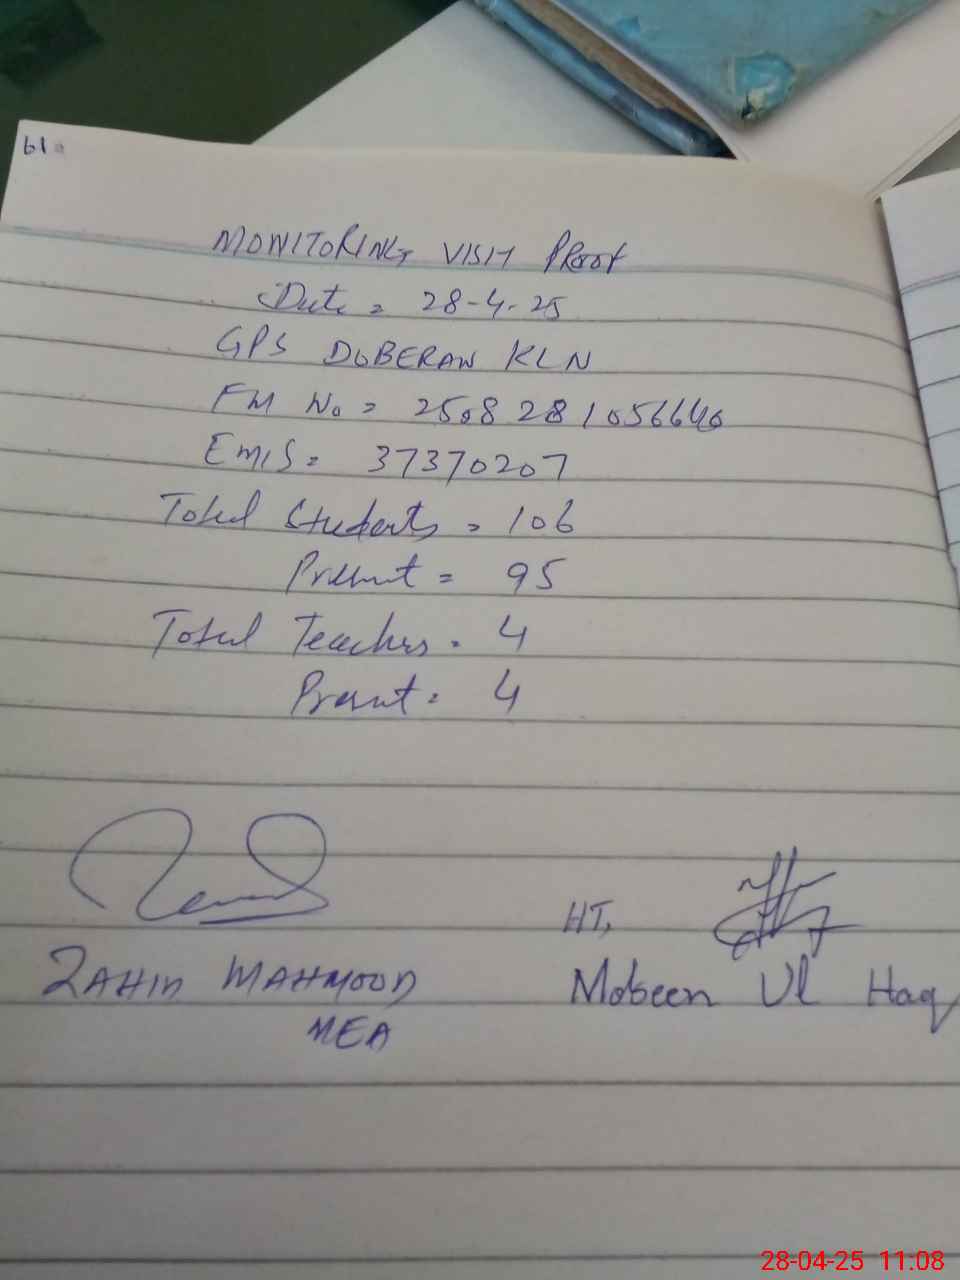 61
MONITORING VISIT PROOF
Date = 28-4-25
GPS DOBERAN KLN
FM No = 2508281056640
EMIS = 37370207
Total Students = 106
Present = 95
Total Teachers = 4
Present = 4
HT,
ZAHID MAHMOOD
Mobeen Ul Haq
MEA
28-04-25 11:08